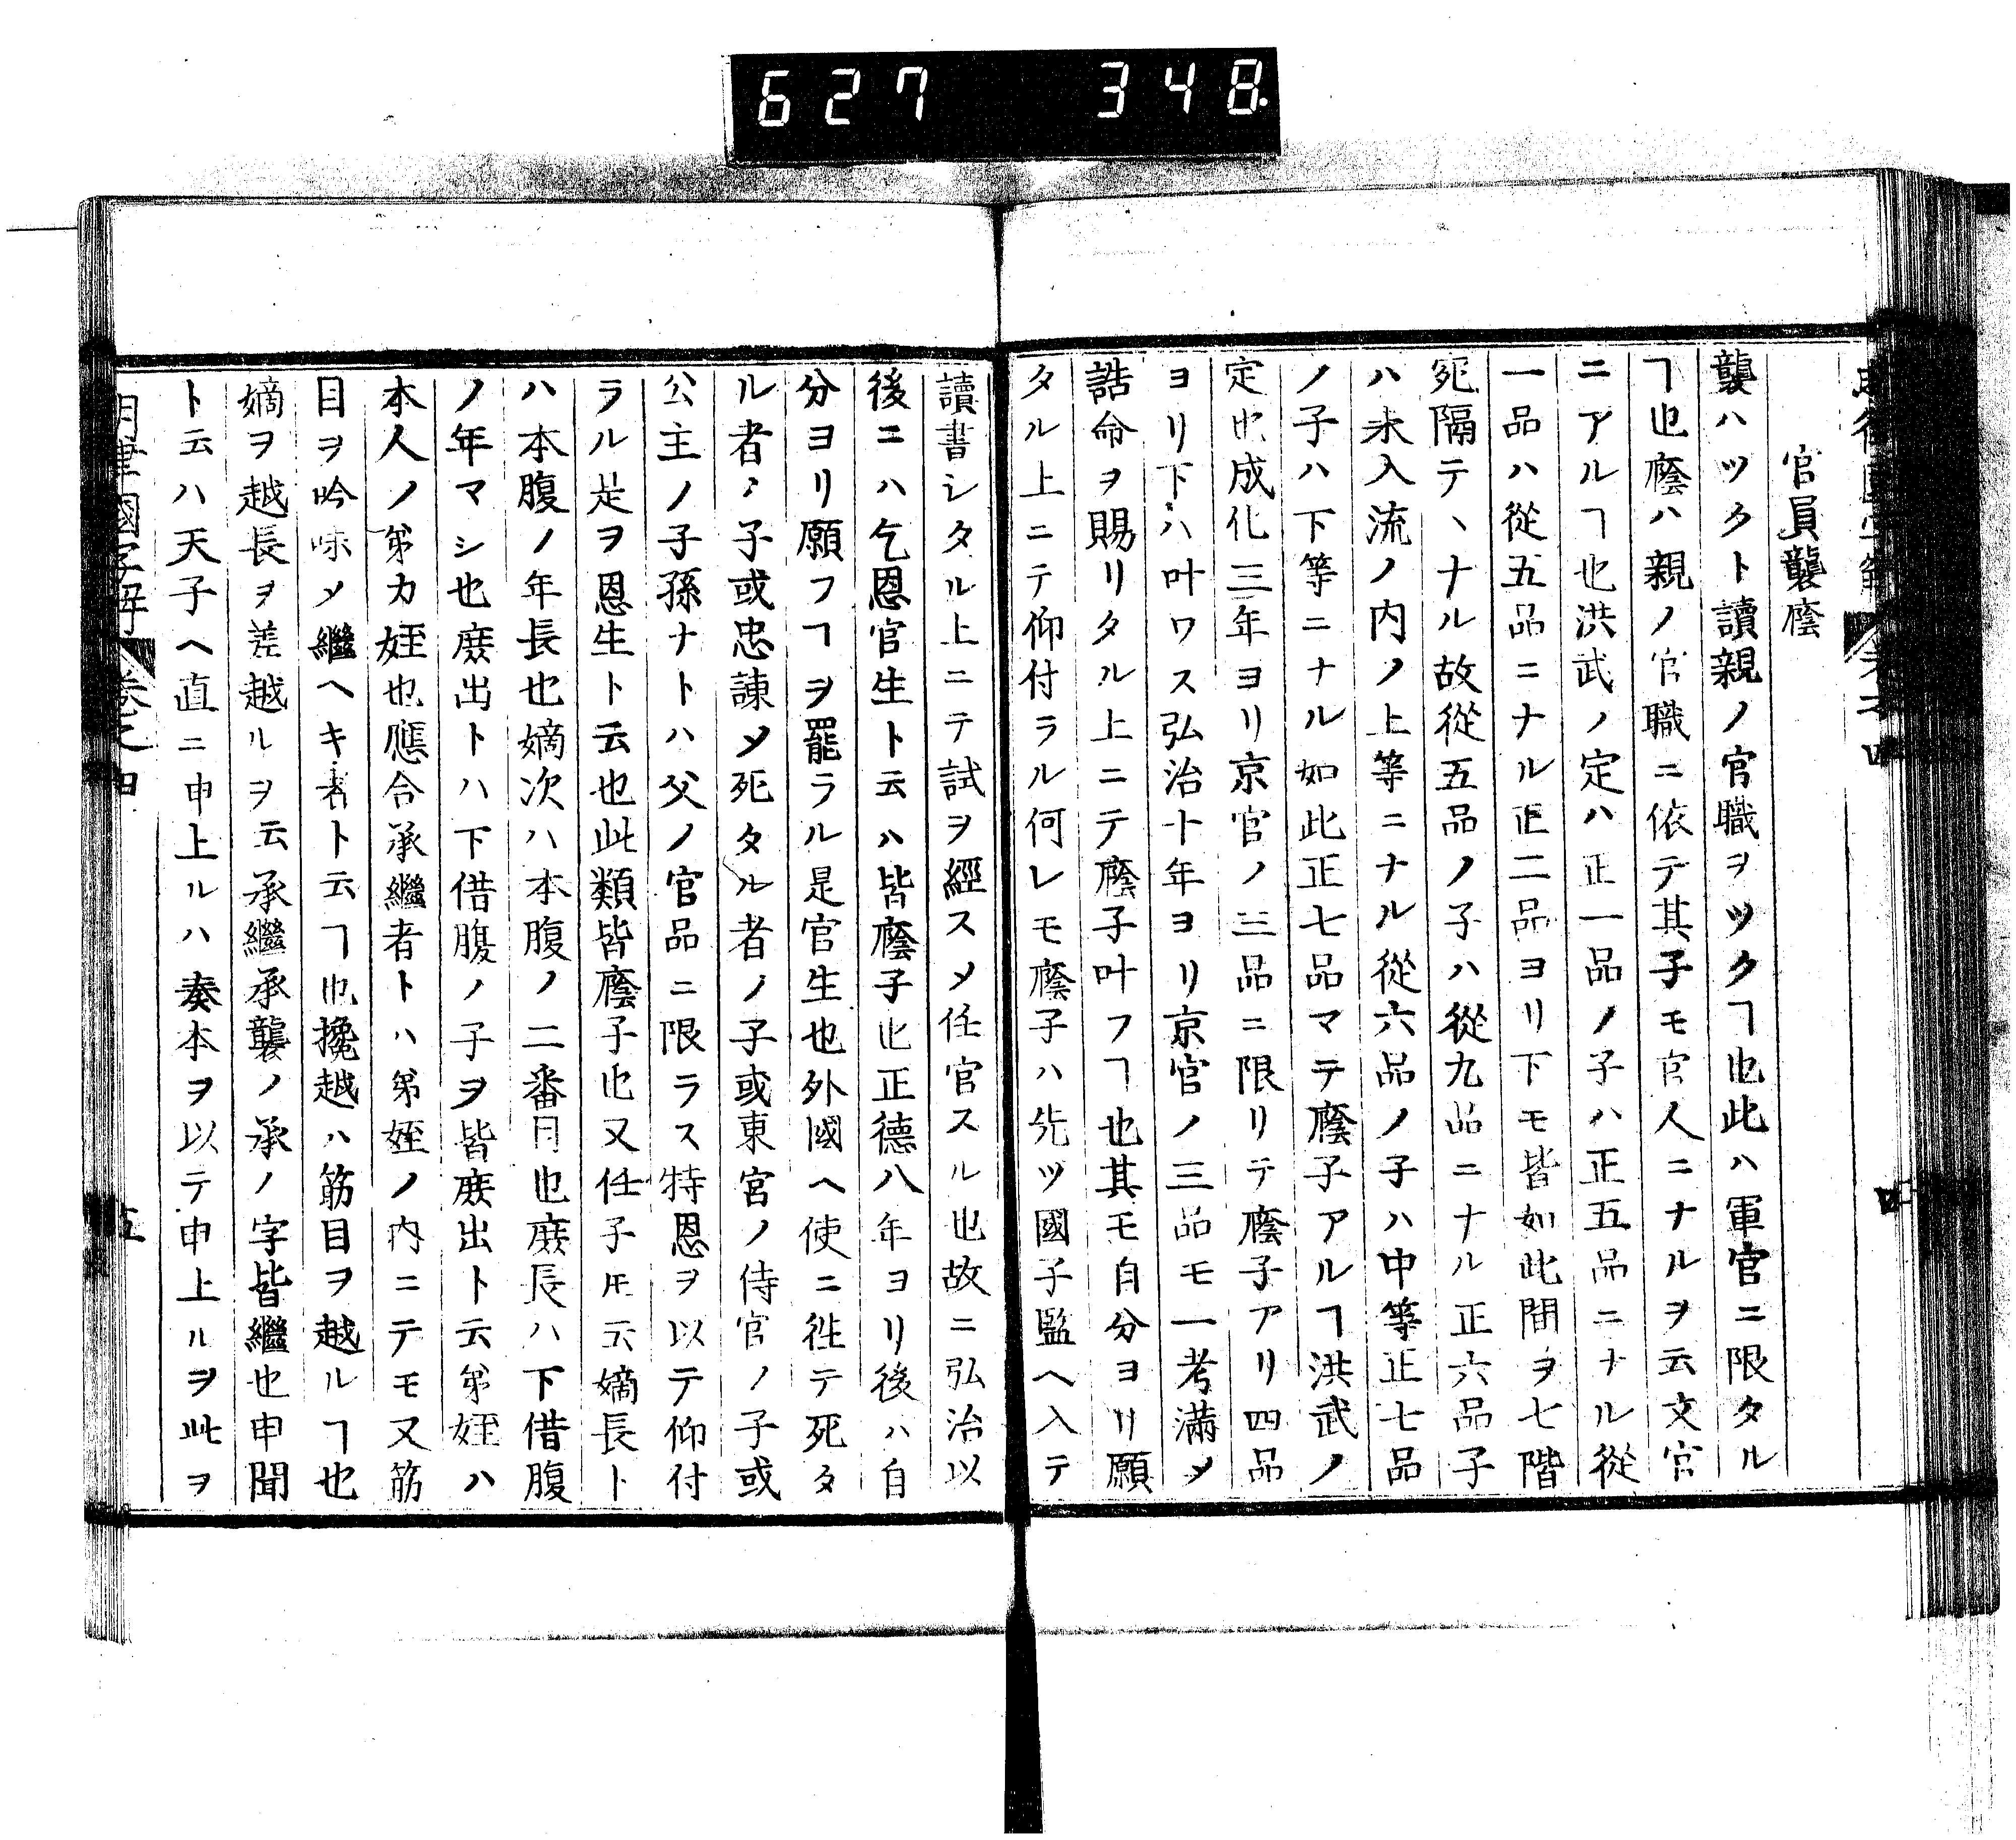 627 348
官員襲廕
襲ハツクト讀親ノ官職ヲツクヿ也此ハ軍官ニ限タル
ヿ也廕ハ親ノ官職ニ依テ其子モ官人ニナルヲ云文官
ニアルヿ也洪武ノ定ハ正一品ノ子ハ正五品ニナル從
一品ハ從五品ニナル正二品ヨリ下モ皆如此間ヲ七階
宛隔テヽナル故從五品ノ子ハ從九品ニナル正六品子
ハ未入流ノ内ノ上等ニナル從六品ノ子ハ中等正七品
ノ子ハ下等ニナル如此正七品マテ廕子アルヿ洪武ノ
定也成化三年ヨリ京官ノ三品ニ限リテ廕子アリ四品
ヨリ下ハ叶ワス弘治十年ヨリ京官ノ三品モ一考滿メ
誥命ヲ賜リタル上ニテ廕子叶フヿ也其モ自分ヨリ願
タル上ニテ仰付ラル何レモ廕子ハ先ツ國子監ヘ入テ
讀書シタル上ニテ試ヲ經スメ任官スル也故ニ弘治以
後ニハ乞恩官生ト云ハ皆廕子也正德八年ヨリ後ハ自
分ヨリ願フヿヲ罷ラル是官生也外國ヘ使ニ徃テ死タ
ル者ノ子或忠諫メ死タル者ノ子或東宮ノ侍官ノ子或
公主ノ子孫ナトハ父ノ官品ニ限ラス特恩ヲ以テ仰付
ラル是ヲ恩生ト云也此類皆廕子也又任子㪽云嫡長ト
ハ本腹ノ年長也嫡次ハ本腹ノ二番目也庻長ハ下借腹
ノ年マシ也庻出トハ下借腹ノ子ヲ皆庻出ト云弟姪ハ
本人ノ弟カ姪也應合承繼者トハ弟姪ノ内ニテモ又筋
目ヲ吟味メ繼ヘキ者ト云ヿ也攙越ハ筋目ヲ越ルヿ也
嫡ヲ越長ヲ差越ルヲ云承繼承襲ノ承ノ字皆繼也申聞
ト云ハ天子ヘ直ニ申上ルハ奏本ヲ以テ申上ルヲ此ヲ
卷之四
五